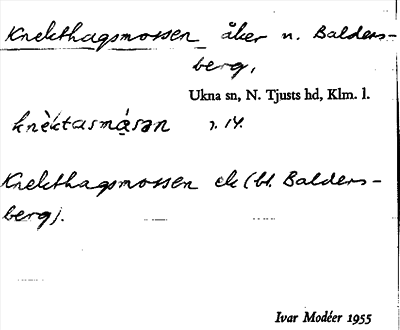 Knekthagsmossen åker n. Balders-
berg,
Ukna sn, N. Tjusts hd, Klm. l.
knèktasmå̀sən 7. 14.
Knekthagsmossen ek (bl. Balders-
berg).
Ivar Modéer 1955